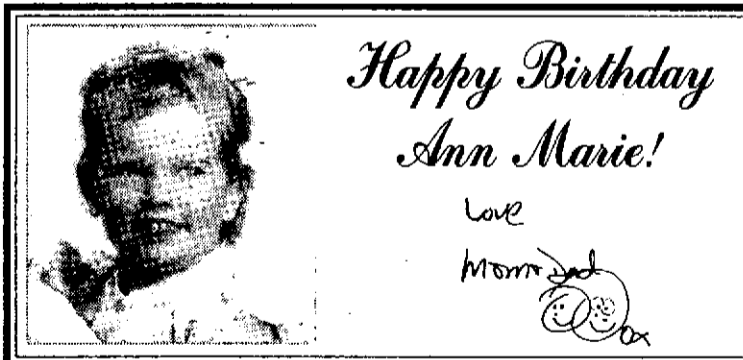 Happy Birthday
Ann Marie!
Love
Mom + Dad
OX